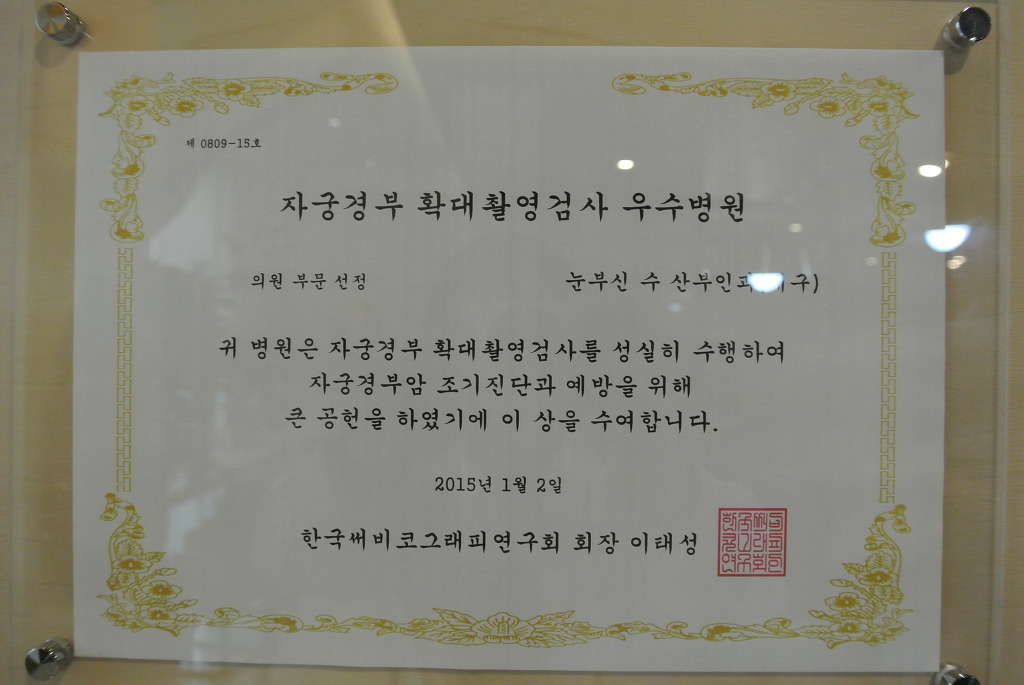 제 0809-15호
자궁경부 확대촬영검사 우수병원
의원 부문 선정 눈부신 수 산부인과 구)
귀 병원은 자궁경부 확대촬영검사를 성실히 수행하여
자궁경부암 조기진단과 예방을 위해
큰 공헌을 하였기에 이 상을 수여합니다.
2015년 1월 2일
한국써비코그래피연구회 회장 이태성